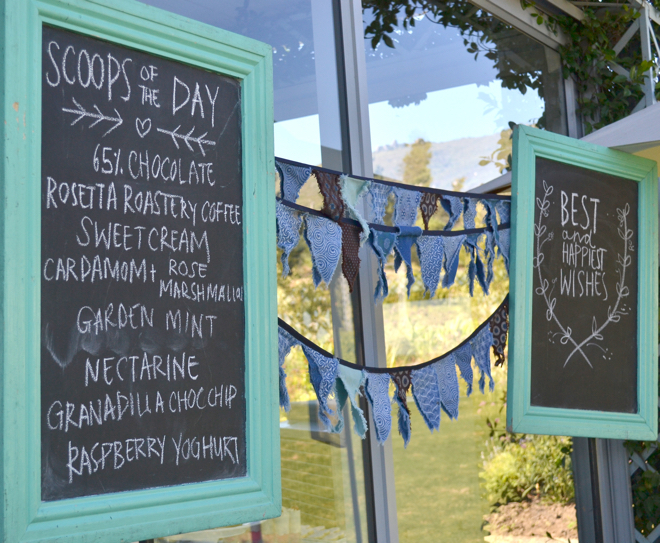 SCOOPS OF THE DAY
65% CHOCOLATE
ROSETTA ROASTERY COFFEE
SWEETCREAM
CARDAMOM + ROSE
MARSHMALLOW
GARDEN MINT
NECTARINE
GRANADILLA CHOC CHIP
RASPBERRY YOGHURT
BEST
and
HAPPIEST
WISHES